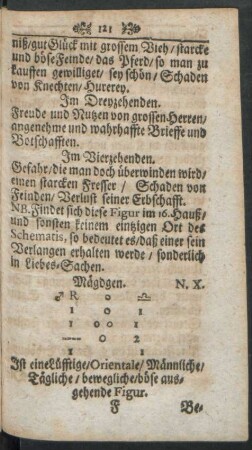 121
niß/gut Glück mit grossem Vieh/starcke
und böse Feinde/das Pferd/so man zu
kauffen gewilliget/sey schön/Schaden
von Knechten/Hurerey.
Im Dreyzehenden.
Freude und Nutzen von grossen Herren/
angenehme und wahrhaffte Brieffe und
Botschafften.
Im Vierzehenden.
Gefahr/die man doch überwinden wird/
einen starcken Fresser/Schaden von
Feinden/Verlust seiner Erbschafft.
NB. Findet sich diese Figur im 16. Hauß/
und sonsten keinem eintzigen Ort des
Schematis, so bedeutet es/daß einer sein
Verlangen erhalten werde/sonderlich
in Liebes-Sachen.
Mägdgen. N. X.
♂ R o ♎
1 0 1
1 0 0 1
0 2
Ist eine Lüfftige/Orientale/Männliche/
Tägliche/bewegliche/böse aus-
gehende Figur.
F Be-